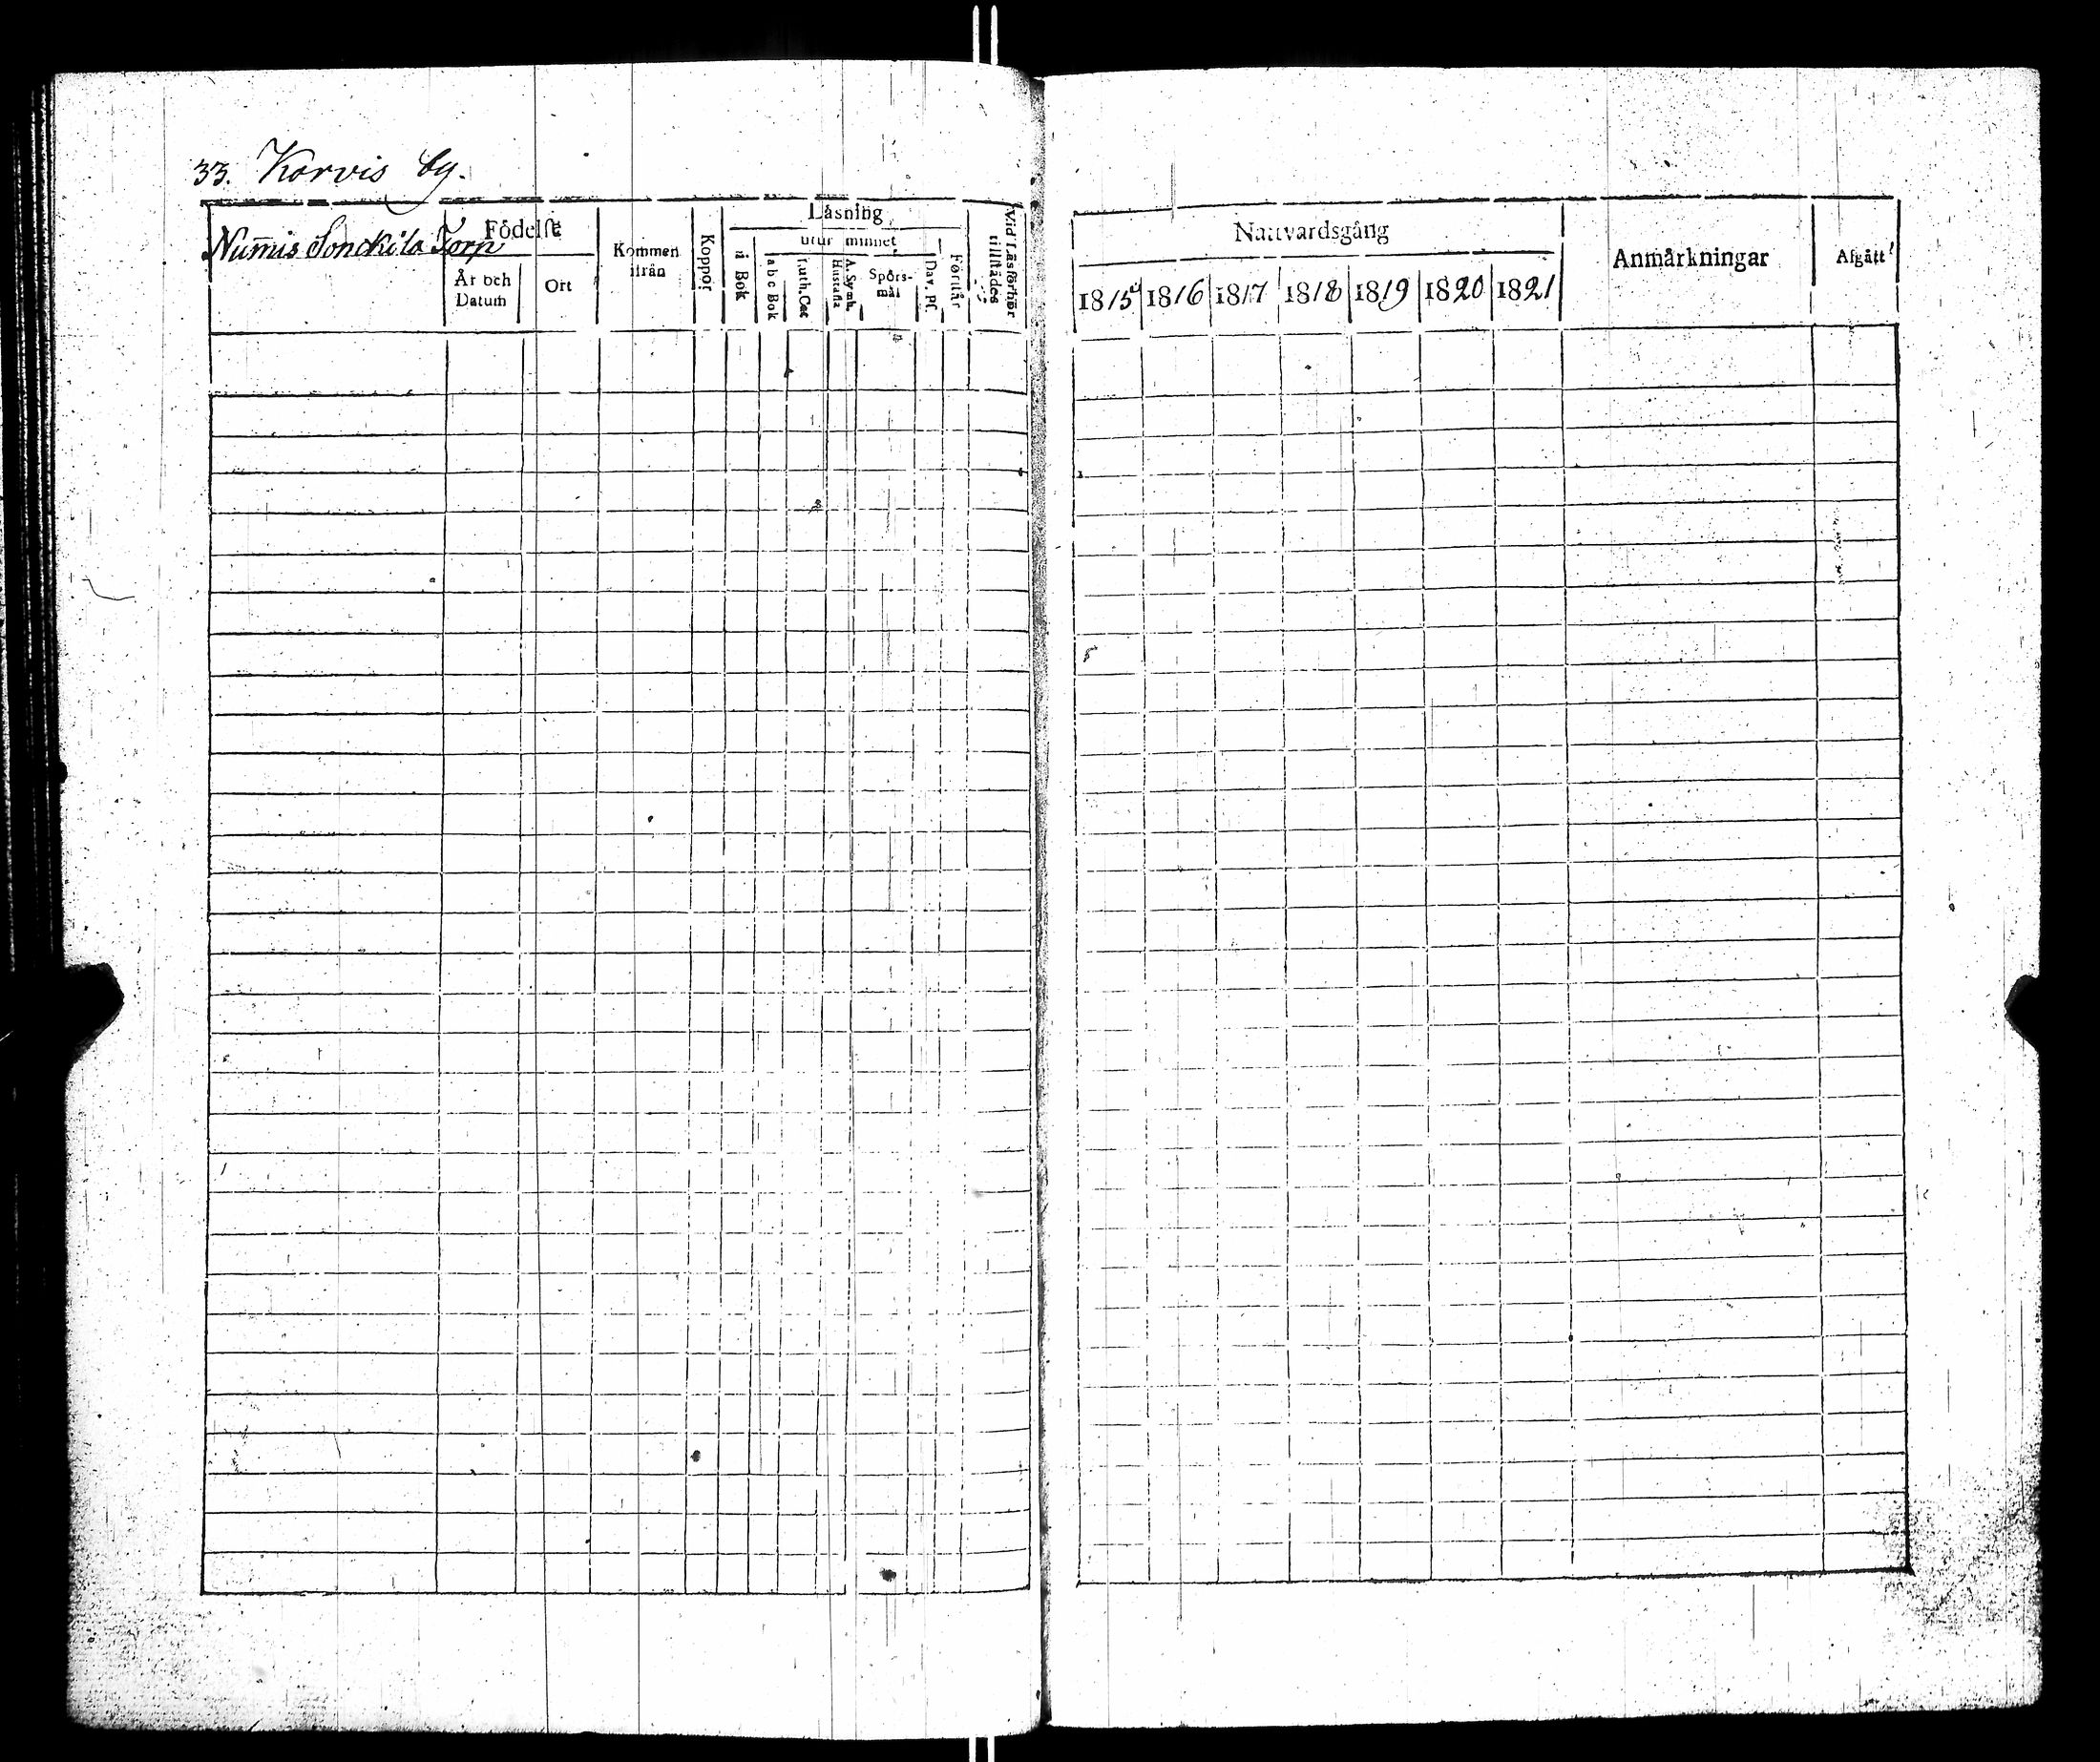 33. Korvis by.
Num̄is Sonckila Torp
Födelse
År och Datum
Ort
Kommen ifrån
Koppor
Läsning
i Bok
utur minnet
a b c Bok
Luth. Cat
A. Symb. Hustafla
Spörs-
mål
Dav. Ps.
Förstår
Vid Läsförhör
tillstädes
Nattvardsgång
1815 1816 1817 1818 1819 1820 1821
Anmärkningar
Afgått